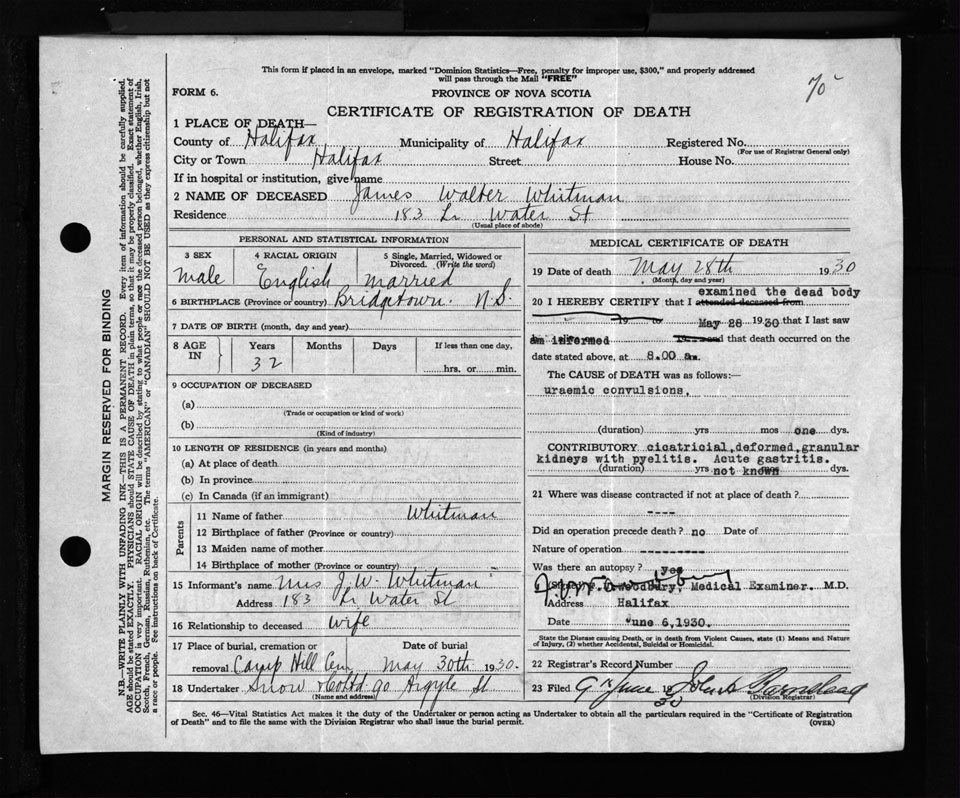 This form if placed in an envelope, marked "Dominion Statistics—Free, penalty for improper use, $300," and properly addressed
will pass through the Mail "FREE"
70
FORM 6.
PROVINCE OF NOVA SCOTIA
CERTIFICATE OF REGISTRATION OF DEATH
1 PLACE OF DEATH—
County of Halifax Municipality of Halifax Registered No.
(For use of Registrar General only)
City or Town Halifax Street House No.
If in hospital or institution, give name
2 NAME OF DECEASED James Walter Whitman
Residence 183 Lr Water St
(Usual place of abode)
PERSONAL AND STATISTICAL INFORMATION
3 SEX 4 RACIAL ORIGIN 5 Single, Married, Widowed or Divorced. (Write the word)
Male English Married
6 BIRTHPLACE (Province or country) Bridgetown. N.S.
7 DATE OF BIRTH (month, day and year)
8 AGE IN Years Months Days If less than one day,
32 hrs. or min.
9 OCCUPATION OF DECEASED
(a)
(Trade or occupation or kind of work)
(b)
(Kind of industry)
10 LENGTH OF RESIDENCE (in years and months)
(a) At place of death
(b) In province
(c) In Canada (if an immigrant)
Parents
11 Name of father Whitman
12 Birthplace of father (Province or country)
13 Maiden name of mother
14 Birthplace of mother (Province or country)
15 Informant's name Mrs J.W. Whitman
Address 183 Lr Water St
16 Relationship to deceased Wife
17 Place of burial, cremation or Date of burial
removal Camp Hill Cem May 30th 1930.
18 Undertaker Snow & Co Ltd 90 Argyle St
(Name and address)
MEDICAL CERTIFICATE OF DEATH
19 Date of death May 28th 1930
(Month, day and year)
examined the dead body
20 I HEREBY CERTIFY that I attended deceased from
19 to May 28 1930 that I last saw
am informed 19 and that death occurred on the
date stated above, at 8.00 am.
The CAUSE of DEATH was as follows:—
uraemic convulsions.
(duration) yrs mos one dys.
CONTRIBUTORY cicatricial,deformed,granular
kidneys with pyelitis. Acute gastritis.
(duration) yrs not known mos dys.
21 Where was disease contracted if not at place of death?
----
Did an operation precede death? no Date of
Nature of operation ---------
Was there an autopsy? yes
Woodbury, Medical Examiner. M.D.
Address Halifax
Date June 6,1930.
State the Disease causing Death, or in death from Violent Causes, state (1) Means and Nature
of Injury, (2) whether Accidental, Suicidal or Homicidal.
22 Registrar's Record Number
23 Filed 9th June 1930 John A
(Division Registrar)
Sec. 46—Vital Statistics Act makes it the duty of the Undertaker or person acting as Undertaker to obtain all the particulars required in the "Certificate of Registration
of Death" and to file the same with the Division Registrar who shall issue the burial permit. (OVER)
MARGIN RESERVED FOR BINDING
N.B.—WRITE PLAINLY WITH UNFADING INK—THIS IS A PERMANENT RECORD. Every item of information should be carefully supplied.
AGE should be stated EXACTLY. PHYSICIANS should STATE CAUSE OF DEATH in plain terms, so that it may be properly classified. Exact statement of
OCCUPATION is very important. RACIAL ORIGIN will be described by stating to what people or race the deceased person belonged, whether English, Irish,
Scotch, French, German, Russian, Ruthenian, etc. The terms "AMERICAN" or "CANADIAN" SHOULD NOT BE USED as they express citizenship but not
a race or people. See instructions on back of Certificate.